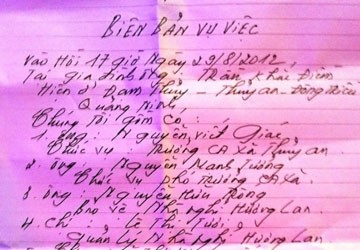 BIÊN BẢN VỤ VIỆC
Vào Hồi 17 giờ Ngày 29/8/2012,
Tại gia đình ông: Trần Khải Điềm
Hiện ở Đạm Thủy - Thủy An - Đông Triều
Quảng Ninh,
Chúng tôi gồm có:
1. ông: Nguyễn Viết Giác
Chức vụ: Trưởng CA xã Thủy An
2. ông: Nguyễn Mạnh Tường
Chức vụ phó trưởng CA xã.
3. ông: Nguyễn Hữu
Bảo vệ: Nhà nghỉ Hương Lan.
4. chị: Lê Thị Tươi
Quản Lý Nhà nghỉ Hương Lan